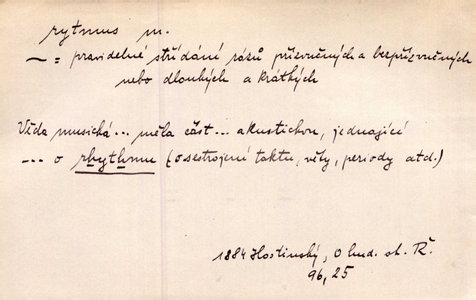 rytmus m.
~ = pravidelné střídání rázů přízvučných a bezpřízvučných
nebo dlouhých a krátkých
Věda musická... měla část... akustickou, jednající
... o rhythmu (o sestrojení taktu, věty, periody atd.)
1884 Hostinský, O hud. st. Ř.
96, 25